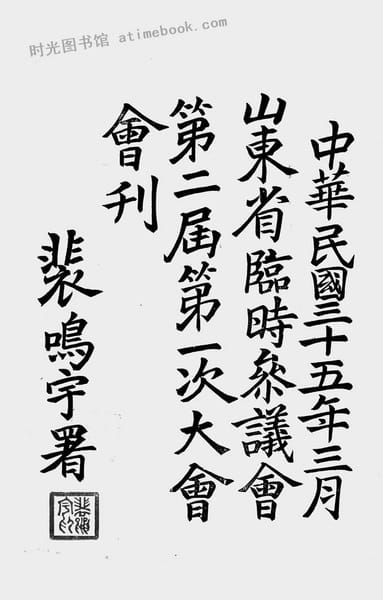 时光图书馆 atimebook.com
中華民國三十五年三月
山東省臨時參議會
第二屆第一次大會
會刊
裴鳴宇署